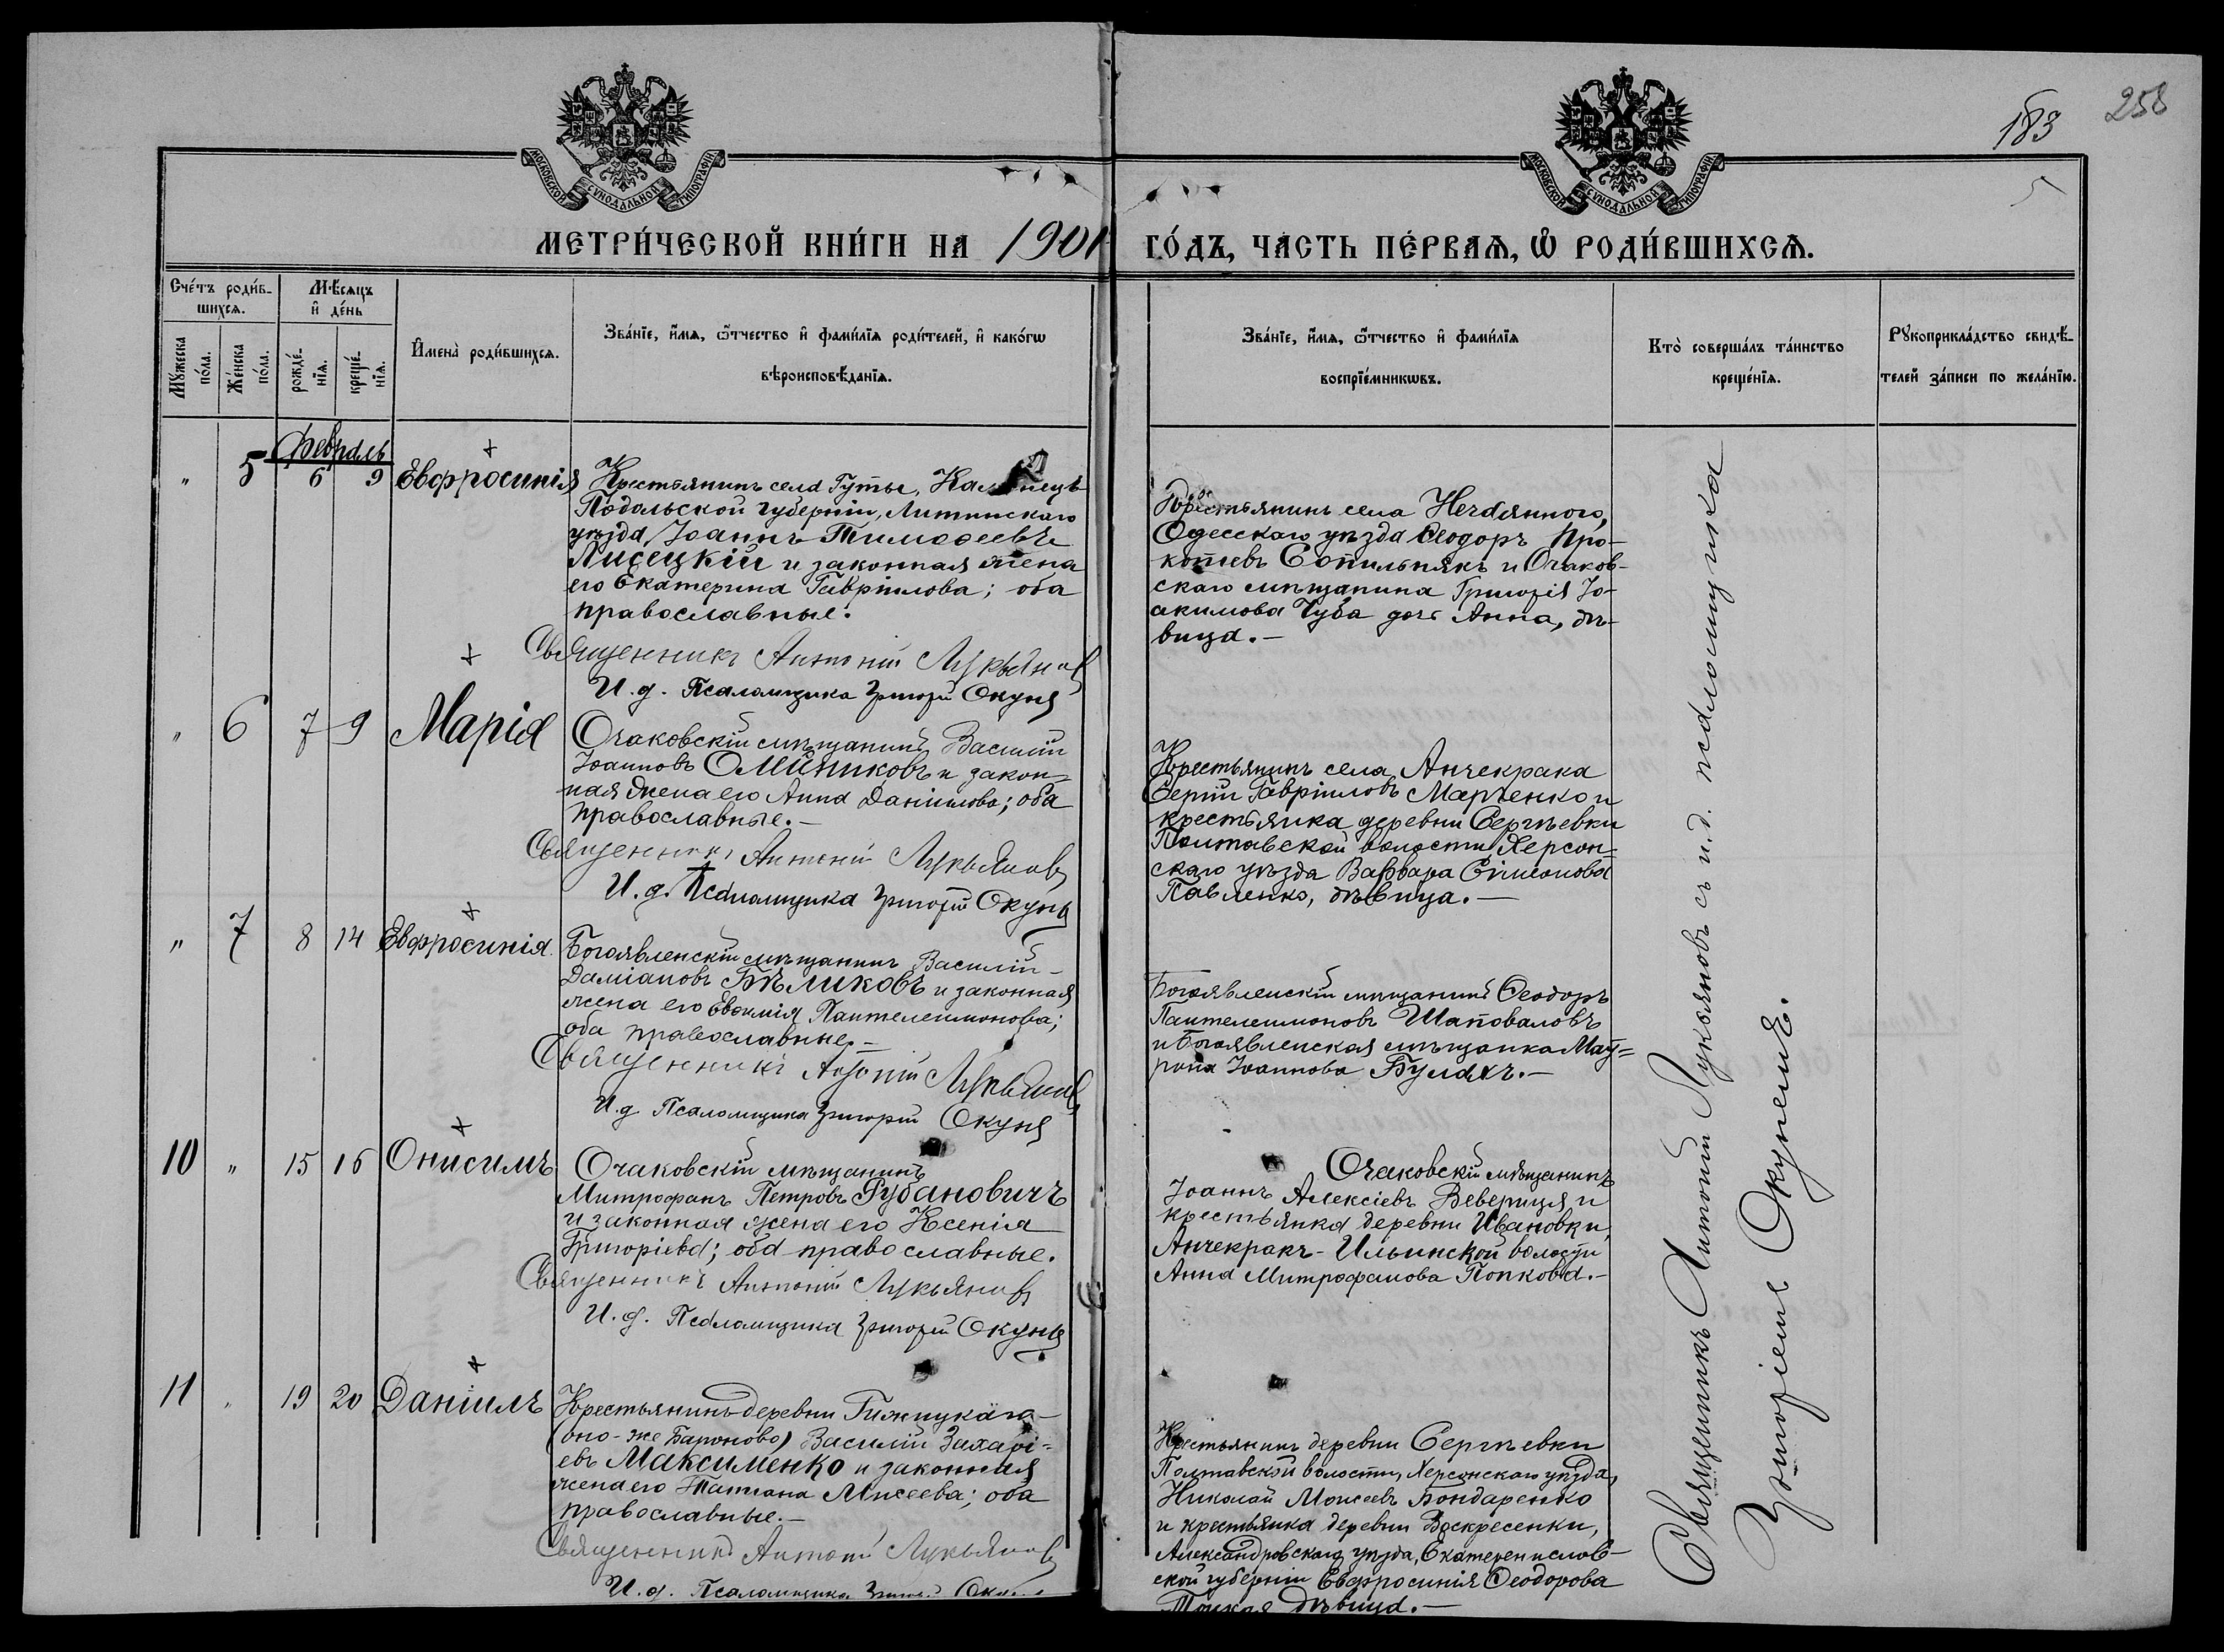 258
183
МОСКОВСКОЙ СУНОДАЛЬНОЙ ТИПОГРАФІИ
МОСКОВСКОЙ СУНОДАЛЬНОЙ ТИПОГРАФІИ
МЕТРИ́ЧЕСКОЙ КНИ́ГИ НА 1901 ГО́ДЪ, ЧА́СТЬ ПЕ́РВАѦ, Ѡ РОДИ́ВШИХСѦ.
Сче́тъ роди́в-
шихсѧ.
Мѣ́сѧцъ
и҆ де́нь
Мꙋ́жеска по́ла.
Же́нска по́ла.
рожде́-
нїѧ.
креще́-
нїѧ.
И҆мена̀ роди́вшихсѧ.
Зва́нїе, и҆́мѧ, ѻ҆́тчество и҆ фами́лїѧ роди́телей, и҆ како́гѡ
вѣроисповѣ́данїѧ.
Зва́нїе, и҆́мѧ, ѻ҆́тчество и҆ фами́лїѧ
воспрїе́мникѡвъ.
Кто̀ соверша́лъ та́инство
креще́нїѧ.
Рꙋкоприкла́дство свидѣ́-
телей за́писи по жела́нїю.
Февраль
" 5 6 9 Евфросинія
Крестьянинъ села Гуты, Каменецъ
Подольской губерніи, Литинскаго
уѣзда, Іоаннъ Тимоѳеевъ
Лисецкій и законная жена
его Екатерина Гавріилова; оба
православные.
Священникъ Антоній Лукьяновъ
И. д. Псаломщика Григорій Окунь
Крестьянинъ села Нечаяннаго,
Одесскаго уѣзда Ѳеодоръ Про-
копіевъ Сопильнякъ и Очаков-
скаго мѣщанина Григорія Іо-
акимова Чуба дочь Анна, дѣ-
вица.-
" 6 7 9 Марія
Очаковскій мѣщанинъ Василій
Іоанновъ Олійниковъ и закон-
ная жена его Анна Даніилова; оба
православные.-
Священникъ Антоній Лукьяновъ
И. д. Псаломщика Григорій Окунь
Крестьянинъ села Анчекрака
Сергій Гавріиловъ Марченко и
крестьянка деревни Сергѣевки
Полтавской волости, Херсон-
скаго уѣзда Варвара Симеонова
Павленко, дѣвица.-
" 7 8 14 Евфросинія.
Богоявленскій мѣщанинъ Василій-
Даміановъ Бѣликовъ и законная
жена его Евѳимія Пантелеимонова;
оба православные.-
Священникъ Антоній Лукьяновъ
И. д Псаломщика Григорій Окунь
Богоявленскій мѣщанинъ Ѳеодоръ
Пантелеимоновъ Шаповаловъ
и Богоявленская мѣщанка Мат-
рона Іоаннова Булахъ.-
10 " 15 16 Онисимъ
Очаковскій мѣщанинъ
Митрофанъ Петровъ Рубановичъ
и законная жена его Ксенія
Григоріева; оба православные.
Священникъ Антоній Лукьяновъ
И. д. Псаломщика Григорій Окунь
Очаковскій мѣщанинъ
Іоаннъ Алексіевъ Веверица и
крестьянка деревни Ивановки,
Анчекракъ-Ильинской волости
Анна Митрофанова Попкова.-
11 " 19 20 Даніилъ
Крестьянинъ деревни
(оно-же Бароново) Василій Захарі-
евъ Максименко и законная
жена его Татіана Моисеева; оба
православные.-
Священникъ Антоній Лукьяновъ
И. д. Псаломщика Григорій
Крестьянинъ деревни Сергѣевки
Полтавской волости, Херсонскаго уѣзда,
Николай Моисеевъ Бондаренко
и крестьянка деревни Воскресенки,
Александровскаго уѣзда, Екатеринослав-
ской губерніи Евфросинія Ѳеодорова
дѣвица.-
Священникъ Антоній Лукьяновъ съ и.д. псаломщика
Григоріемъ Окунемъ.